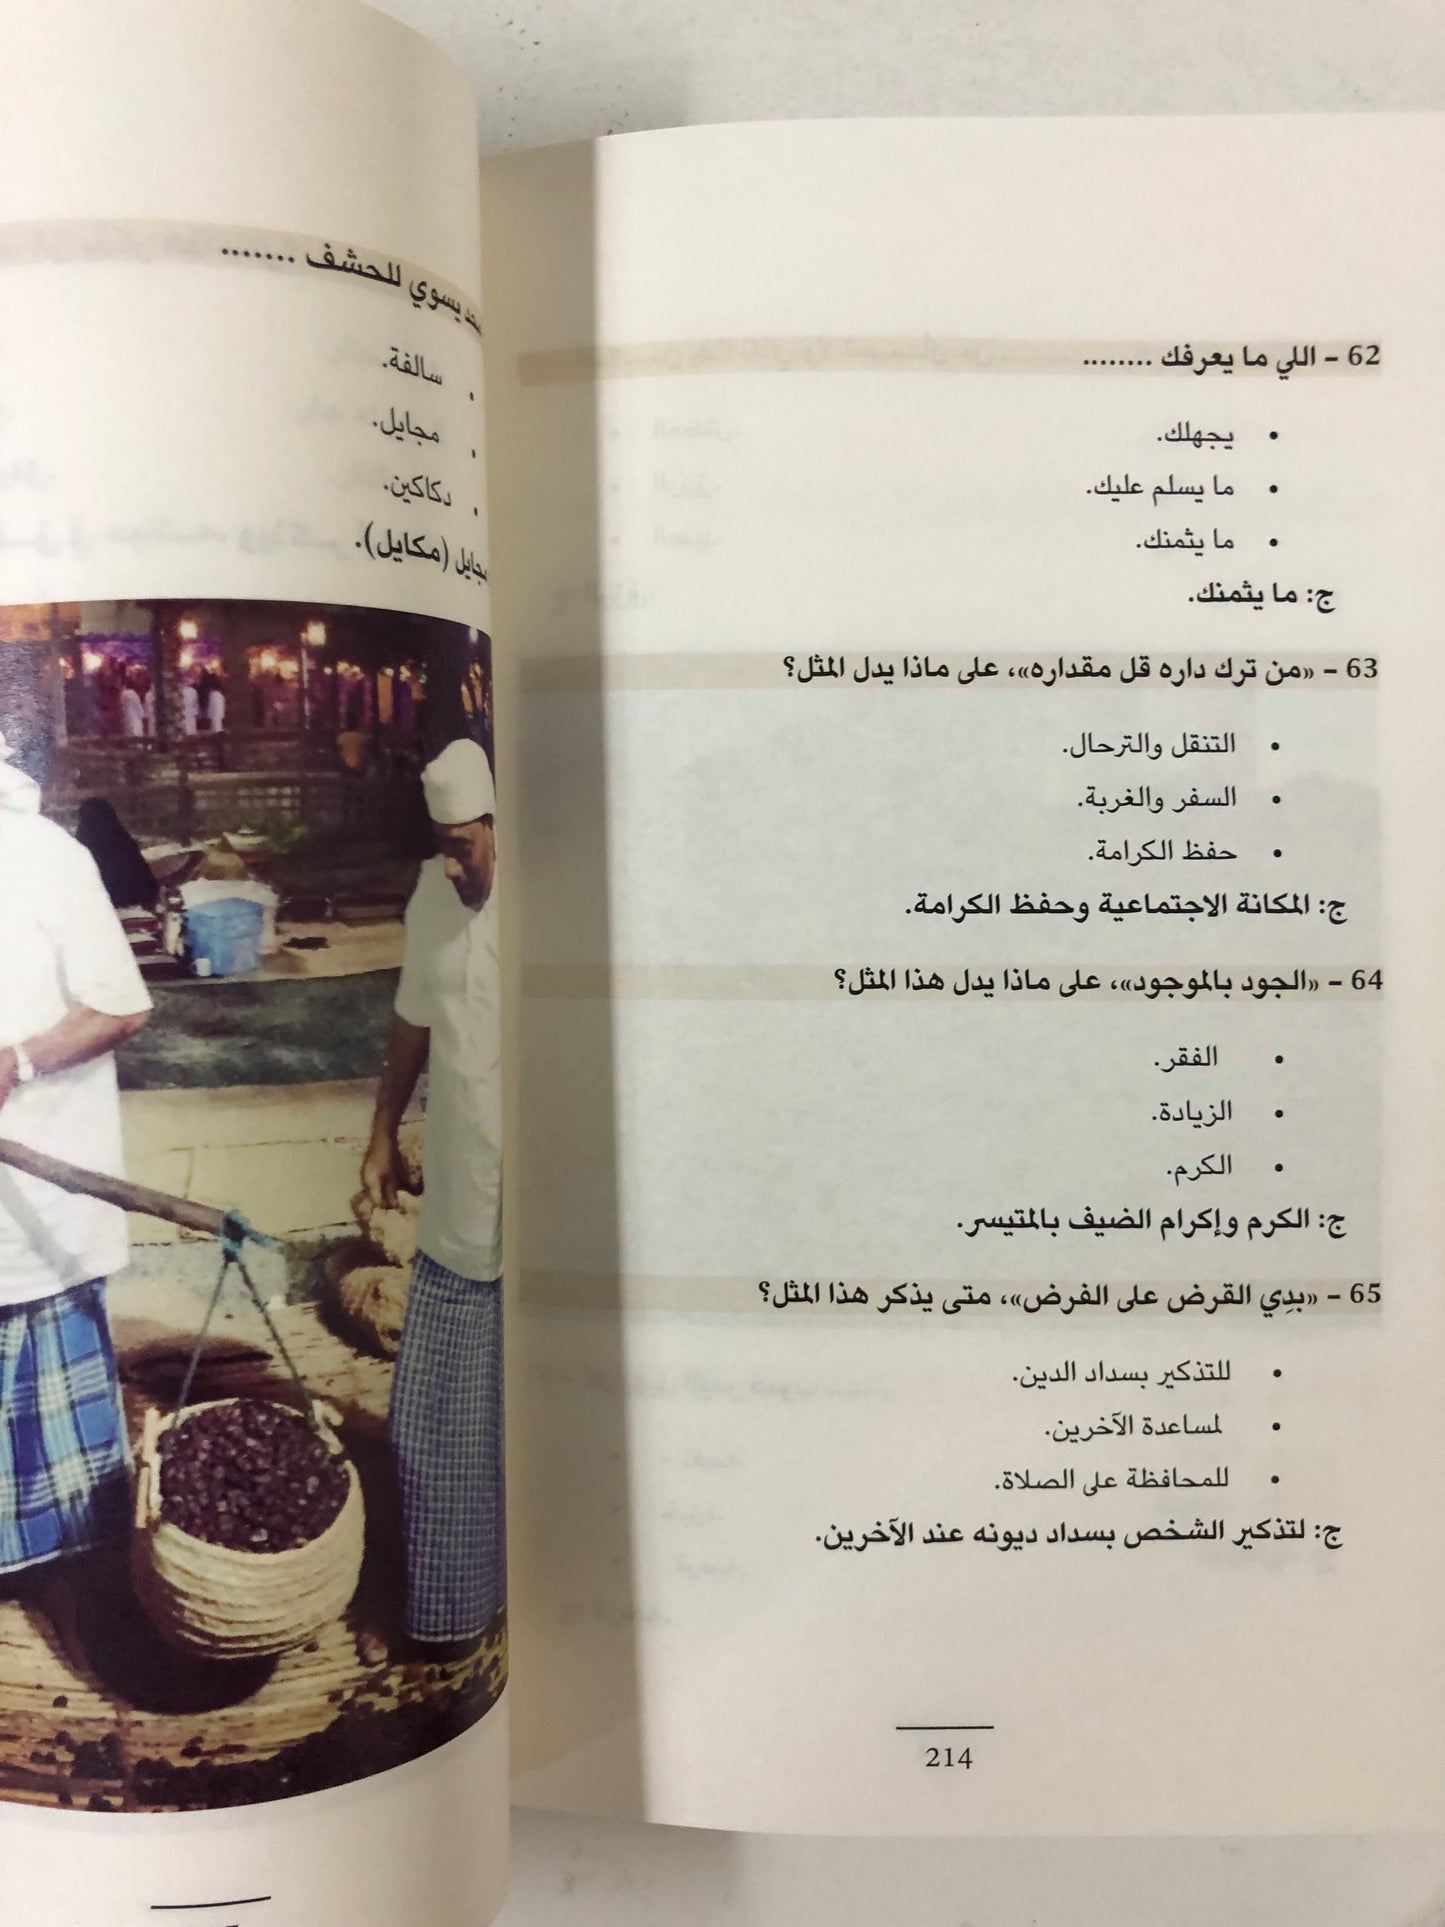 62 – اللي ما يعرفك ........
• يجهلك.
• ما يسلم عليك.
• ما يثمنك.
ج: ما يثمنك.
63 – «من ترك داره قل مقداره»، على ماذا يدل المثل؟
• التنقل والترحال.
• السفر والغربة.
• حفظ الكرامة.
ج: المكانة الاجتماعية وحفظ الكرامة.
64 – «الجود بالموجود»، على ماذا يدل هذا المثل؟
• الفقر.
• الزيادة.
• الكرم.
ج: الكرم وإكرام الضيف بالمتيسر.
65 – «بدِي القرض على الفرض»، متى يذكر هذا المثل؟
• للتذكير بسداد الدين.
• لمساعدة الآخرين.
• للمحافظة على الصلاة.
ج: لتذكير الشخص بسداد ديونه عند الآخرين.
214
يسوي للحشف .......
• سالفة.
• مجايل.
• دكاكين.
مجايل (مكايل).